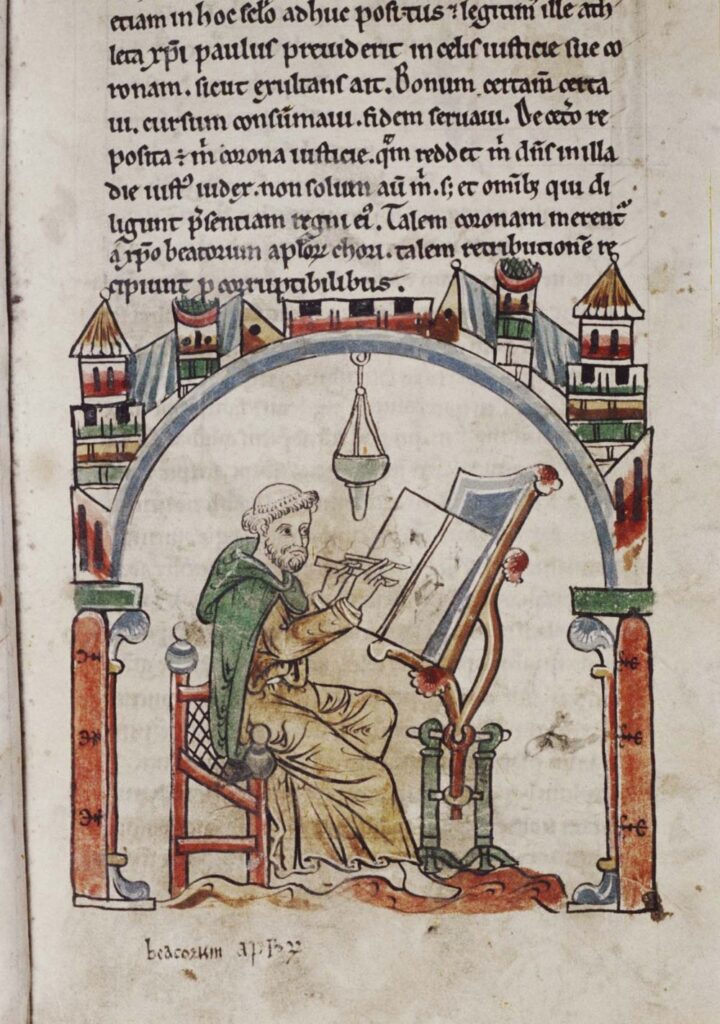 etiam in hoc sclo adhuc positus ⁊ legitim ille ath
leta xpi paulus preuiderit in celis iusticie sue co
ronam. sicut exultans ait. Bonum certam̄ certa
ui. cursum consūmaui. fidem seruaui. De cetō re
posita ÷ m̄ corona iusticie. qm̄ reddet m̄ dn̄s in illa
die iustꝰ iudex. non solum aū m̄. s; et omīb; qui di
ligunt p̄sentiam regni eiꝰ. Talem coronam merent̄
a xp̄o beatorum aplor̄ chori. talem retributionē re
cipiunt p corruptibilibus.
beatorum ap